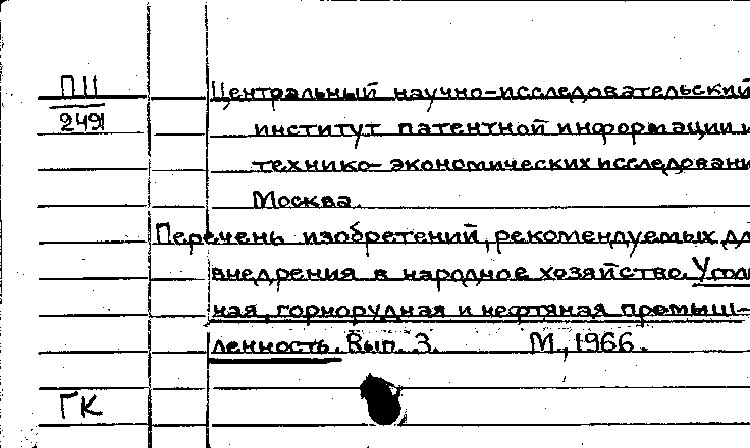 ПII
2491
Центральный научно-исследовательский
институт патентной информации и
технико-экономических исследовани
Москва.
Перечень изобретений, рекомендуемых дл
внедрения в народное хозяйство. Уголь
ная, горнорудная и нефтяная промыш-
ленность. Вып. 3. М., 1966.
ГК